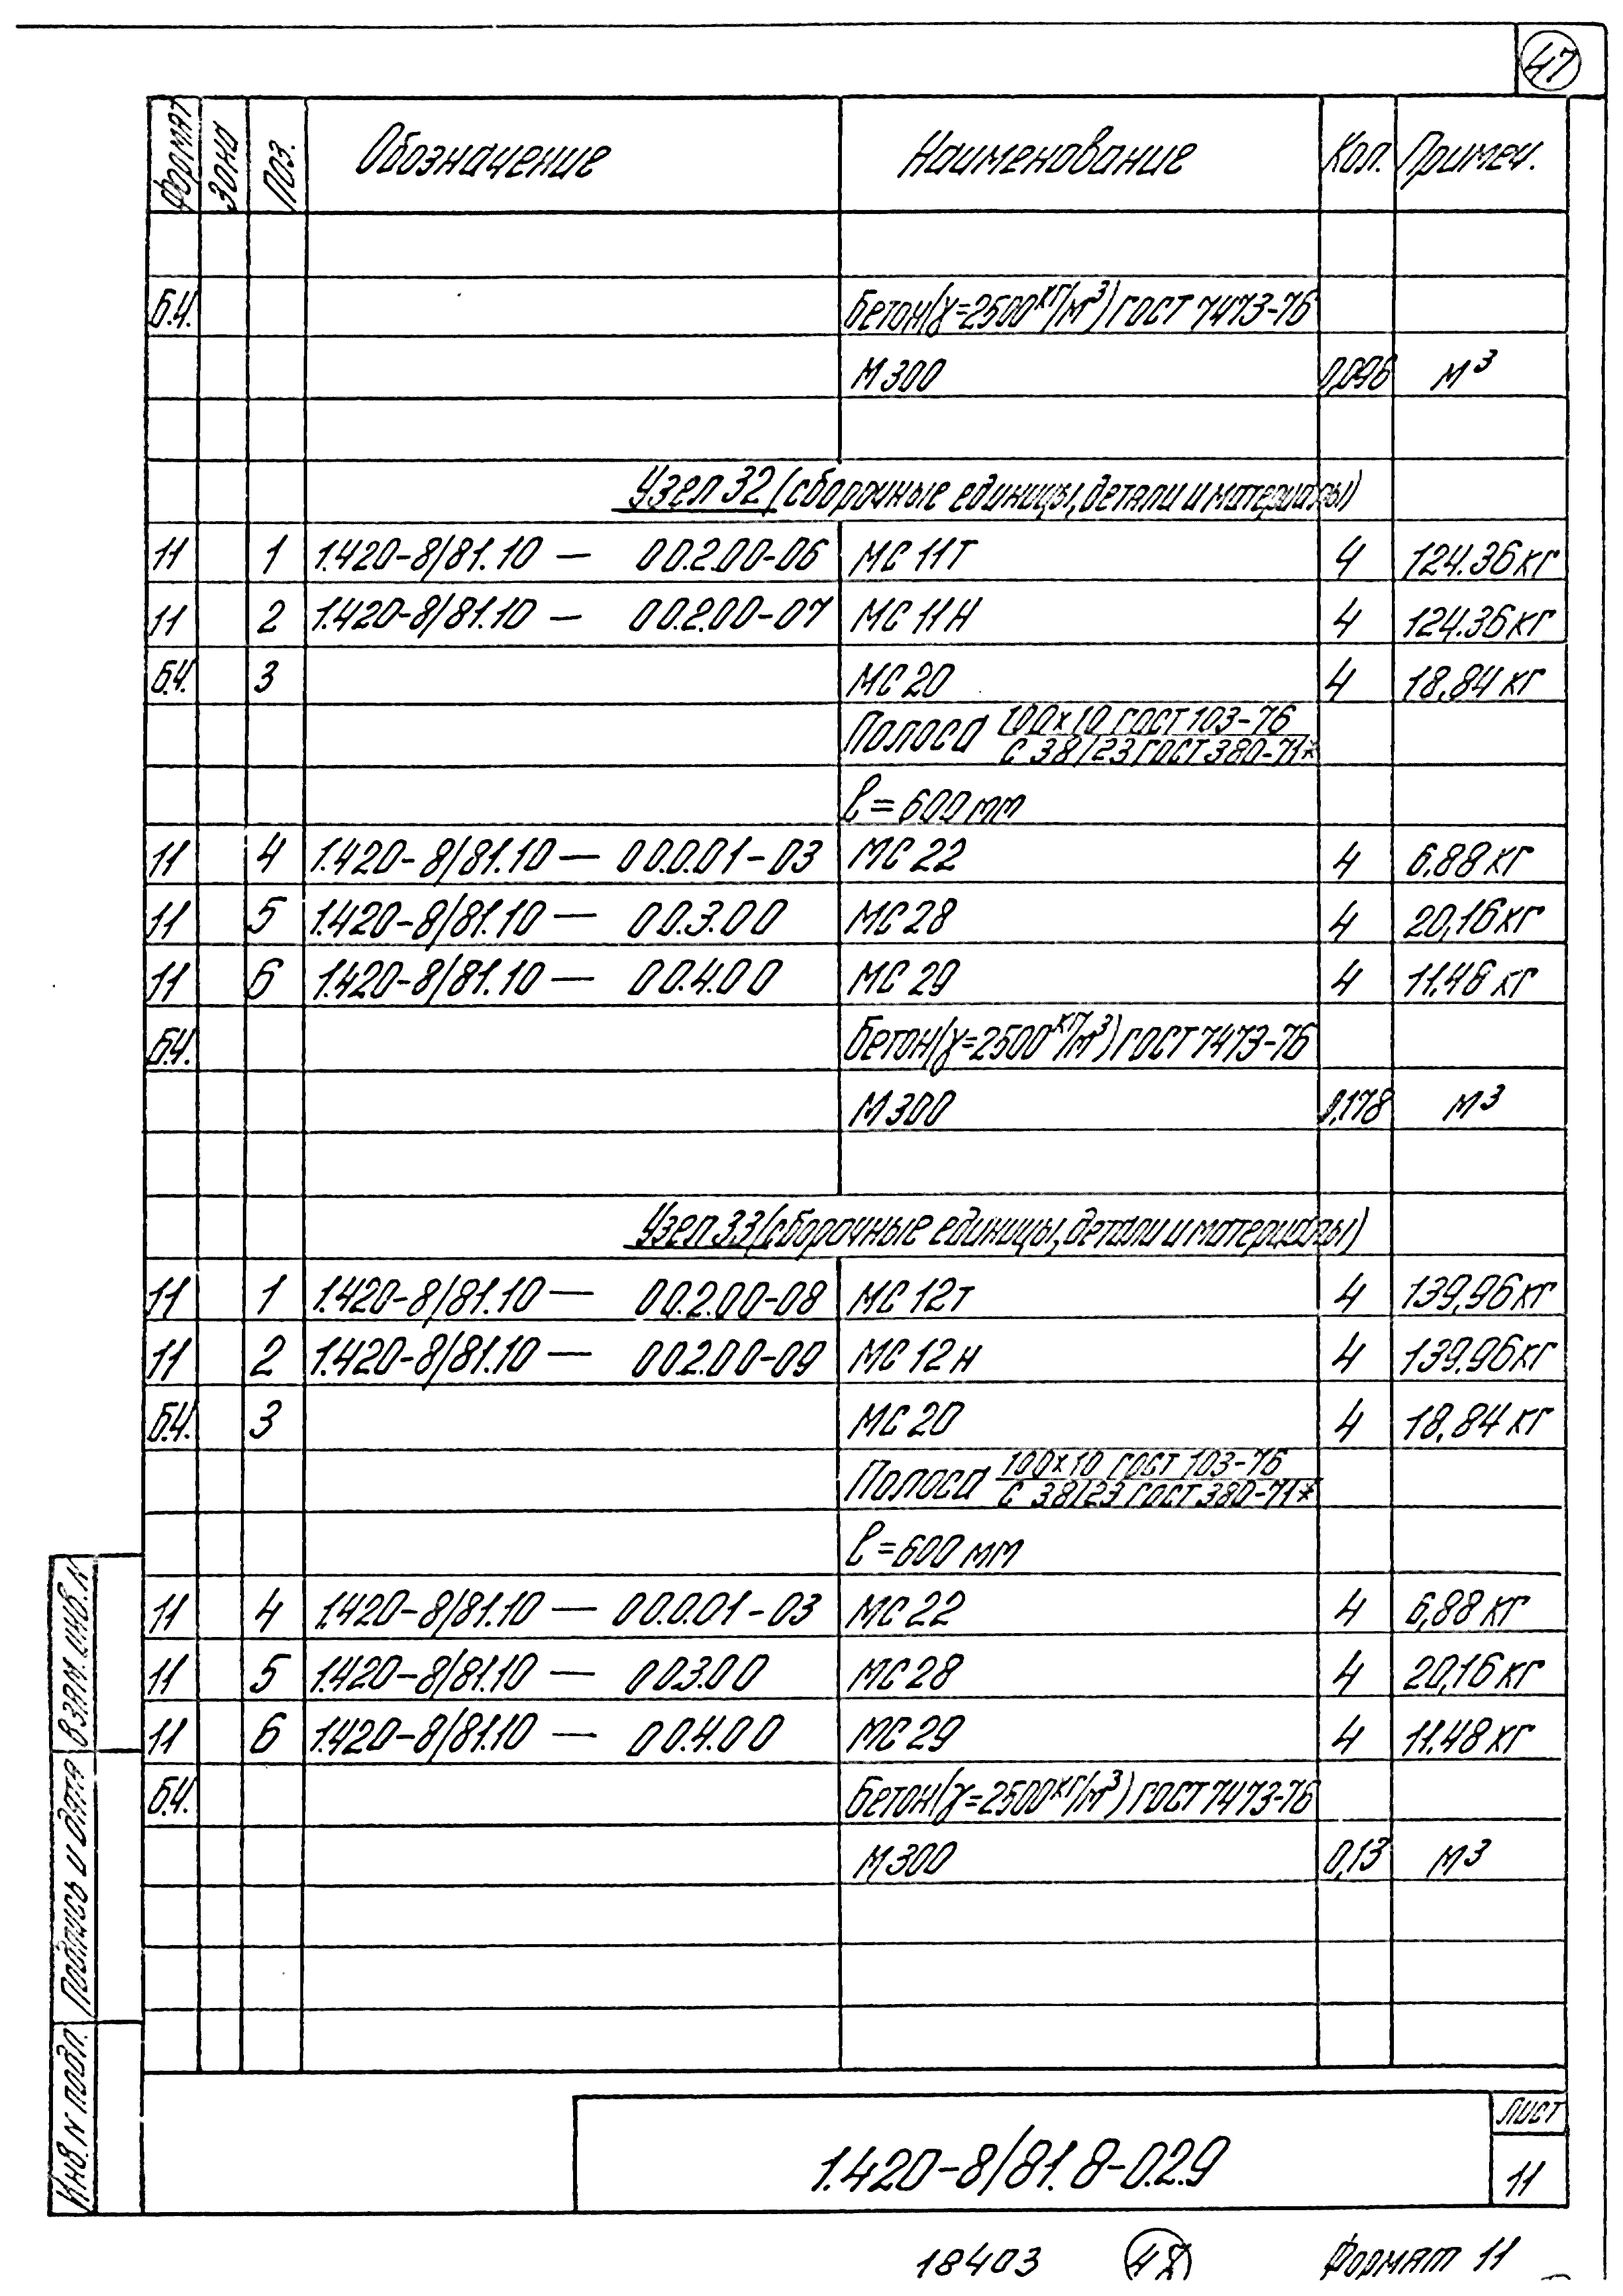 47
Формат Зона Поз. Обозначение Наименование Кол. Примеч.
Б.Ч. Бетон(γ=2500кг/м³) ГОСТ 7473-76
М300 0,096 м³
Узел 32 (сборочные единицы, детали и материалы)
11 1 1.420-8/81.10 — 00.2.00-06 МС 11т 4 124.36 кг
11 2 1.420-8/81.10 — 00.2.00-07 МС 11н 4 124.36 кг
Б.Ч. 3 МС 20 4 18,84 кг
Полоса 100×10 ГОСТ 103-76
С 38/23 ГОСТ 380-71*
ℓ = 600 мм
11 4 1.420-8/81.10 — 00.0.01-03 МС 22 4 6,88 кг
11 5 1.420-8/81.10 — 00.3.00 МС 28 4 20,16 кг
11 6 1.420-8/81.10 — 00.4.00 МС 29 4 11,48 кг
Б.Ч. Бетон(γ=2500кг/м³) ГОСТ 7473-76
М300 0,178 м³
Узел 33 (сборочные единицы, детали и материалы)
11 1 1.420-8/81.10 — 00.2.00-08 МС 12т 4 139,96 кг
11 2 1.420-8/81.10 — 00.2.00-09 МС 12н 4 139,96 кг
Б.Ч. 3 МС 20 4 18,84 кг
Полоса 100×10 ГОСТ 103-76
С 38/23 ГОСТ 380-71*
ℓ = 600 мм
11 4 1.420-8/81.10 — 00.0.01-03 МС 22 4 6,88 кг
11 5 1.420-8/81.10 — 00.3.00 МС 28 4 20,16 кг
11 6 1.420-8/81.10 — 00.4.00 МС 29 4 11,48 кг
Б.Ч. Бетон(γ=2500кг/м³) ГОСТ 7473-76
М300 0,13 м³
Взам. инв. N
Подпись и дата
Инв. N подл.
1.420-8/81.8-0.2.9
Лист
11
18403 48 Формат 11